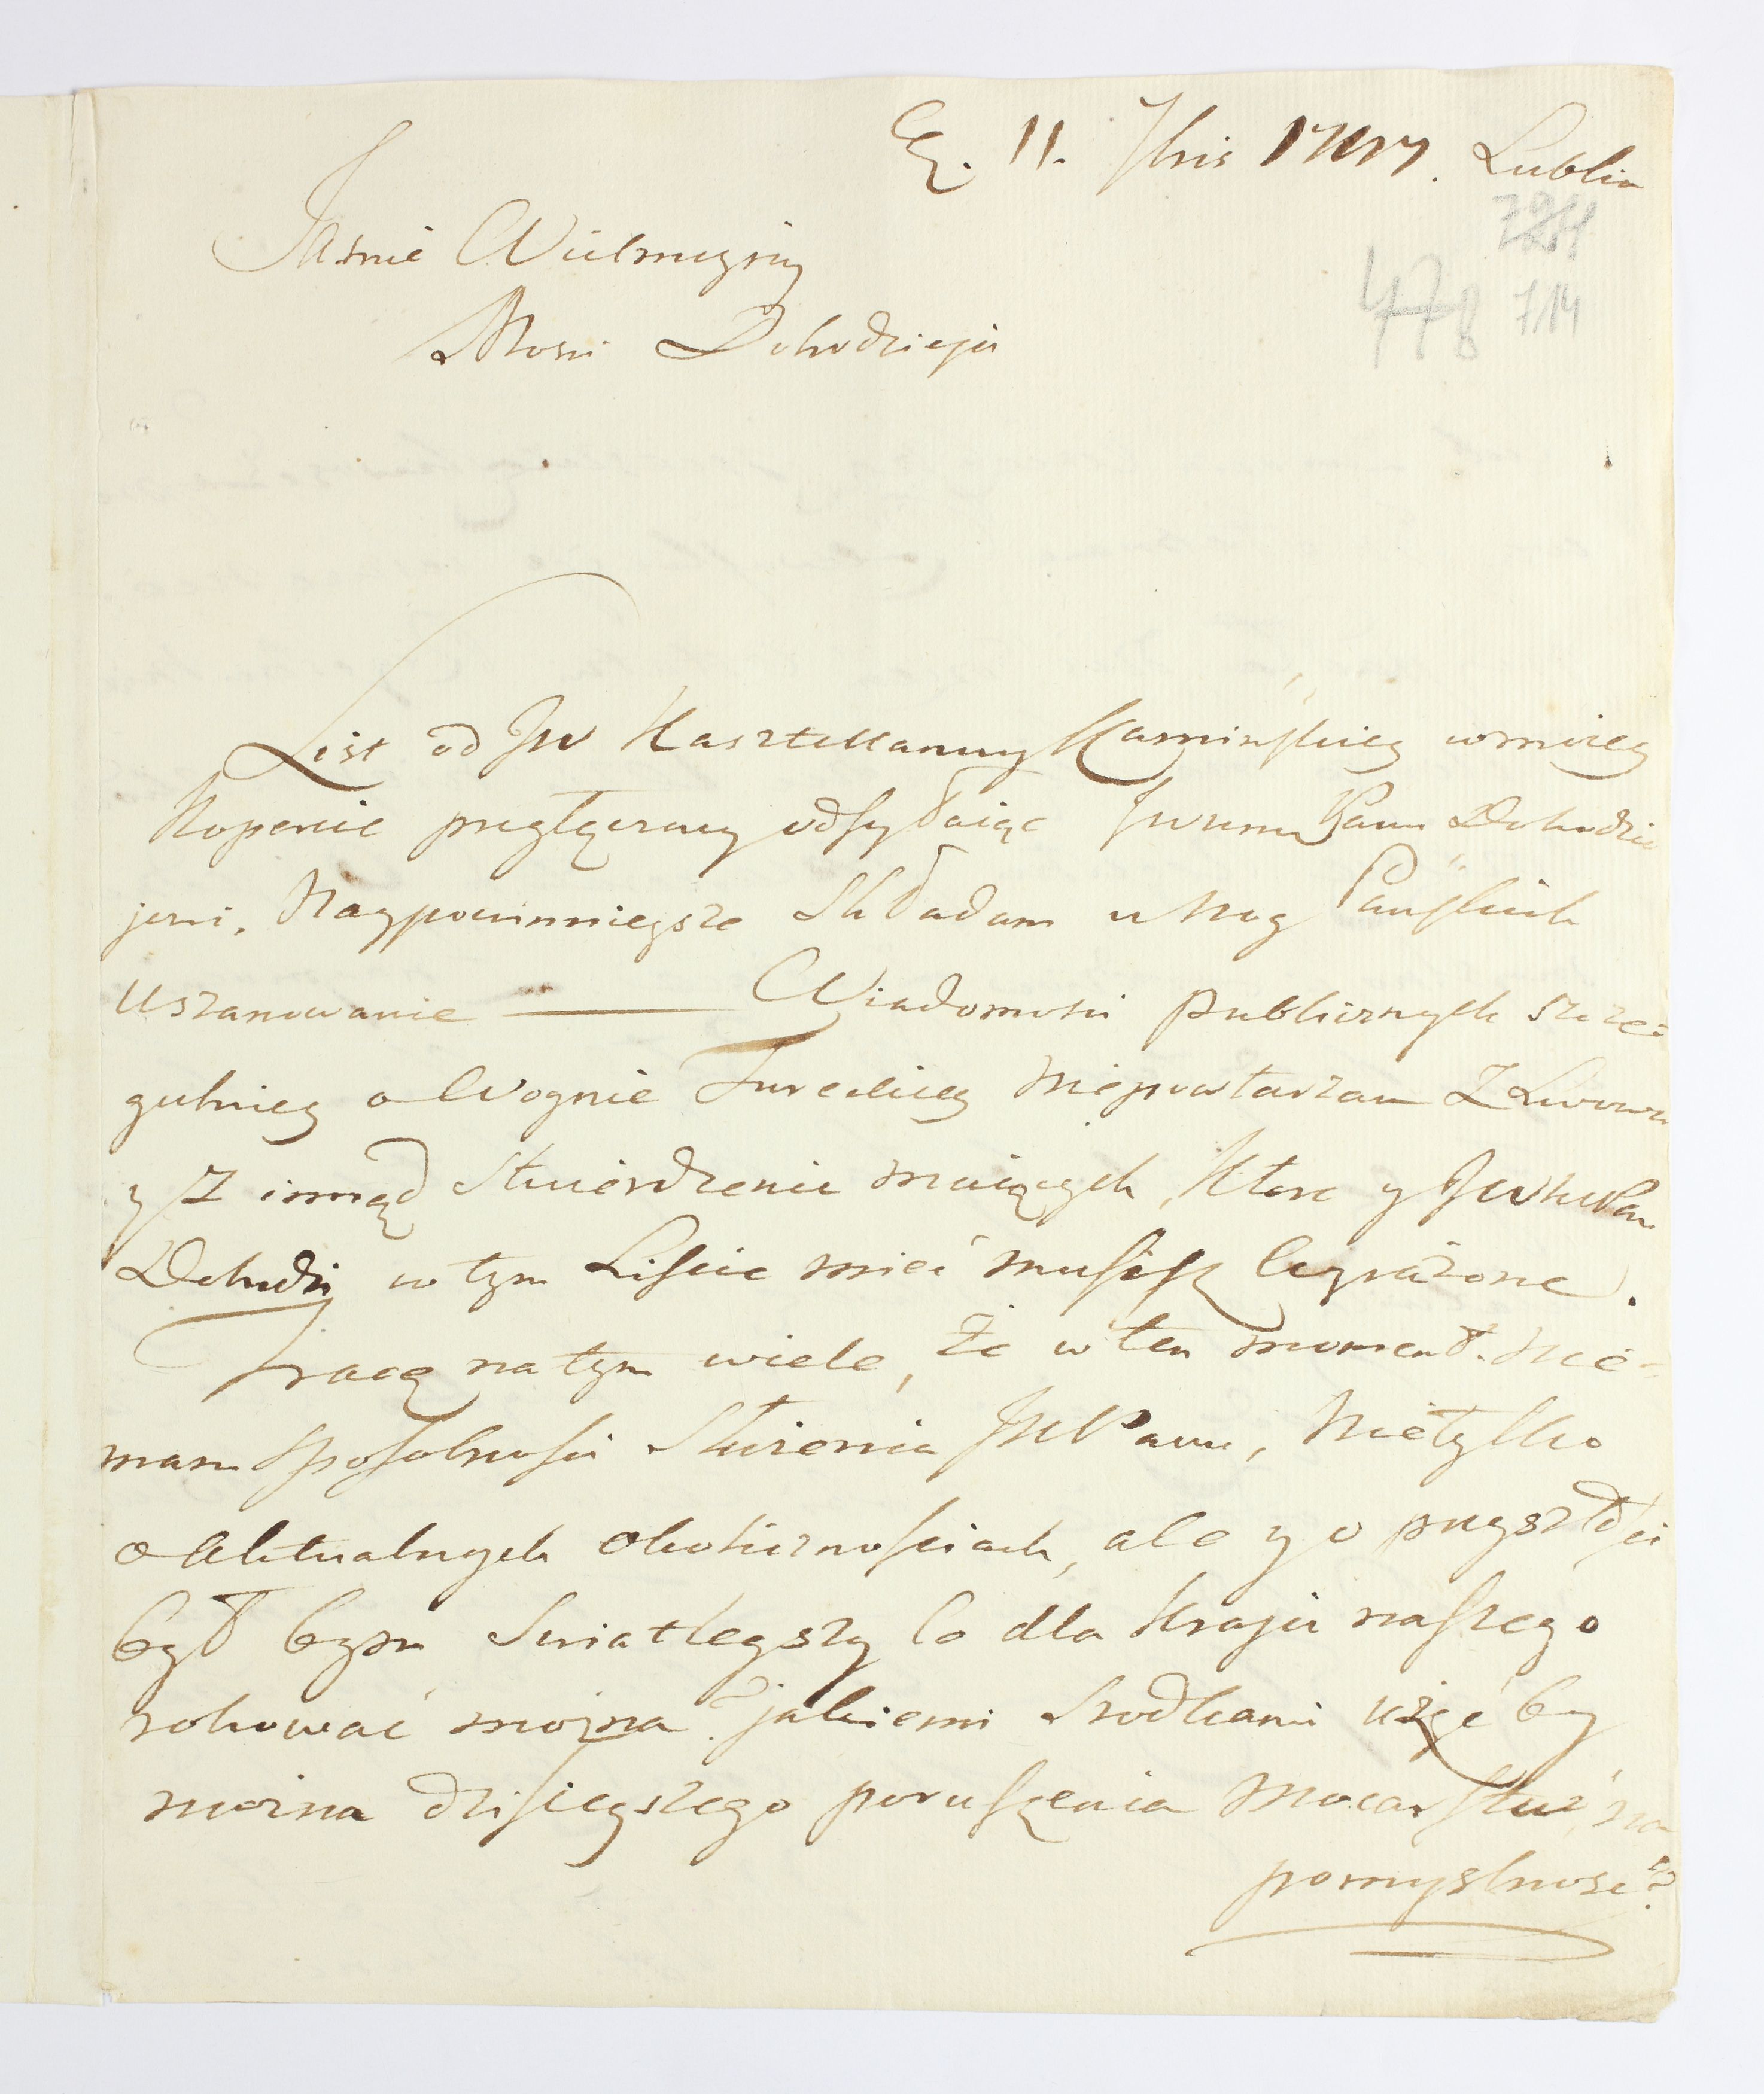 11. 7bris 1787. Lublin
7
478 714
Jasnie Wielmozny
Mosci Dobrodzieju
List od JW Kasztellanny Kaminskiey w moiey
Kopercie przyłączony odsyłaiąc JWmu Panu Dobrodzie
jowi, Naypowinnieysze Składam u Nog Pańskich
Uszanowanie — Wiadomosci publicznych szcze=
gulniey o Woynie Tureckiey niepowtarzam z Lwowa
y z innąd stwierdzenie maiących, Ktore y JW Pan
Dobrodzi w tym Liscie mieć musisz wyrażone.
Tracę na tym wiele, że w ten moment nie=
mam sposobnosci Służenia JW Panu, Nietylko
o aktualnych okolicznosciach, ale y o przyszłosci
był bym Swiatleyszy Co dla Kraju naszego
rokować mozna? jakiemi srodkami użyć by
mozna dzisieyszego poruszenia Mocarstw, na
pomyslnosc?